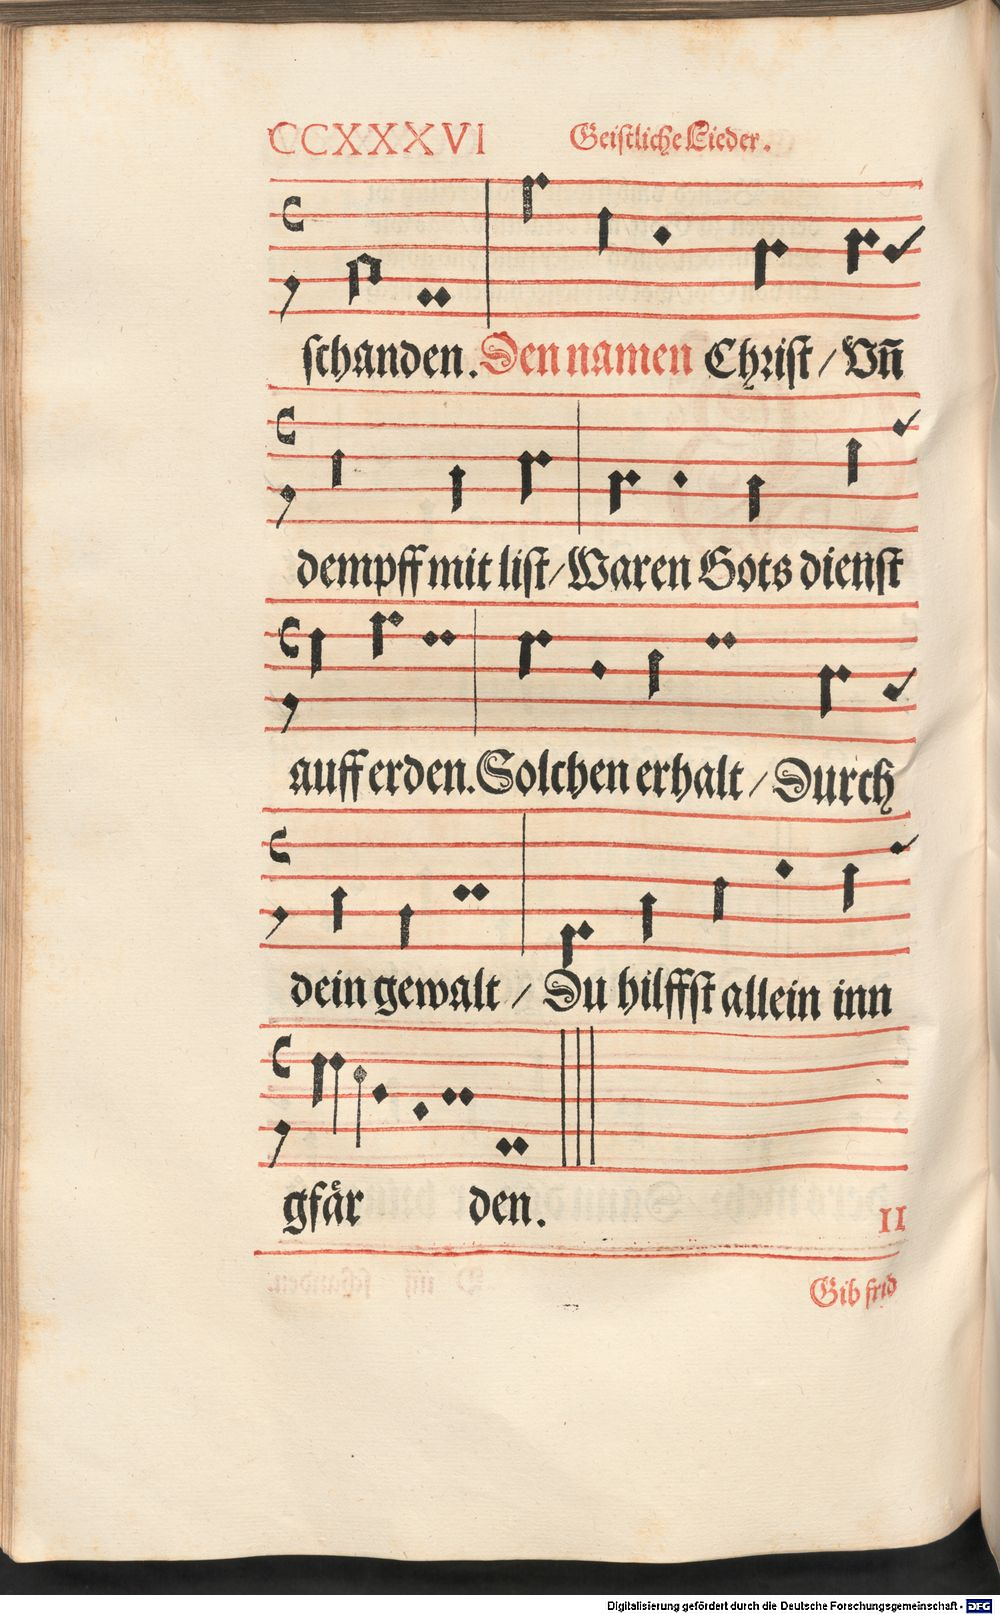 CCXXXVI Geistliche Lieder.
schanden. Den namen Christ / Vñ
dempff mit list / Waren Gots dienst
auff erden. Solchen erhalt / Durch
dein gewalt / Du hilffst allein inn
gfaͤr den.
II
Gib frid
Digitalisierung gefördert durch die Deutsche Forschungsgemeinschaft - DFG